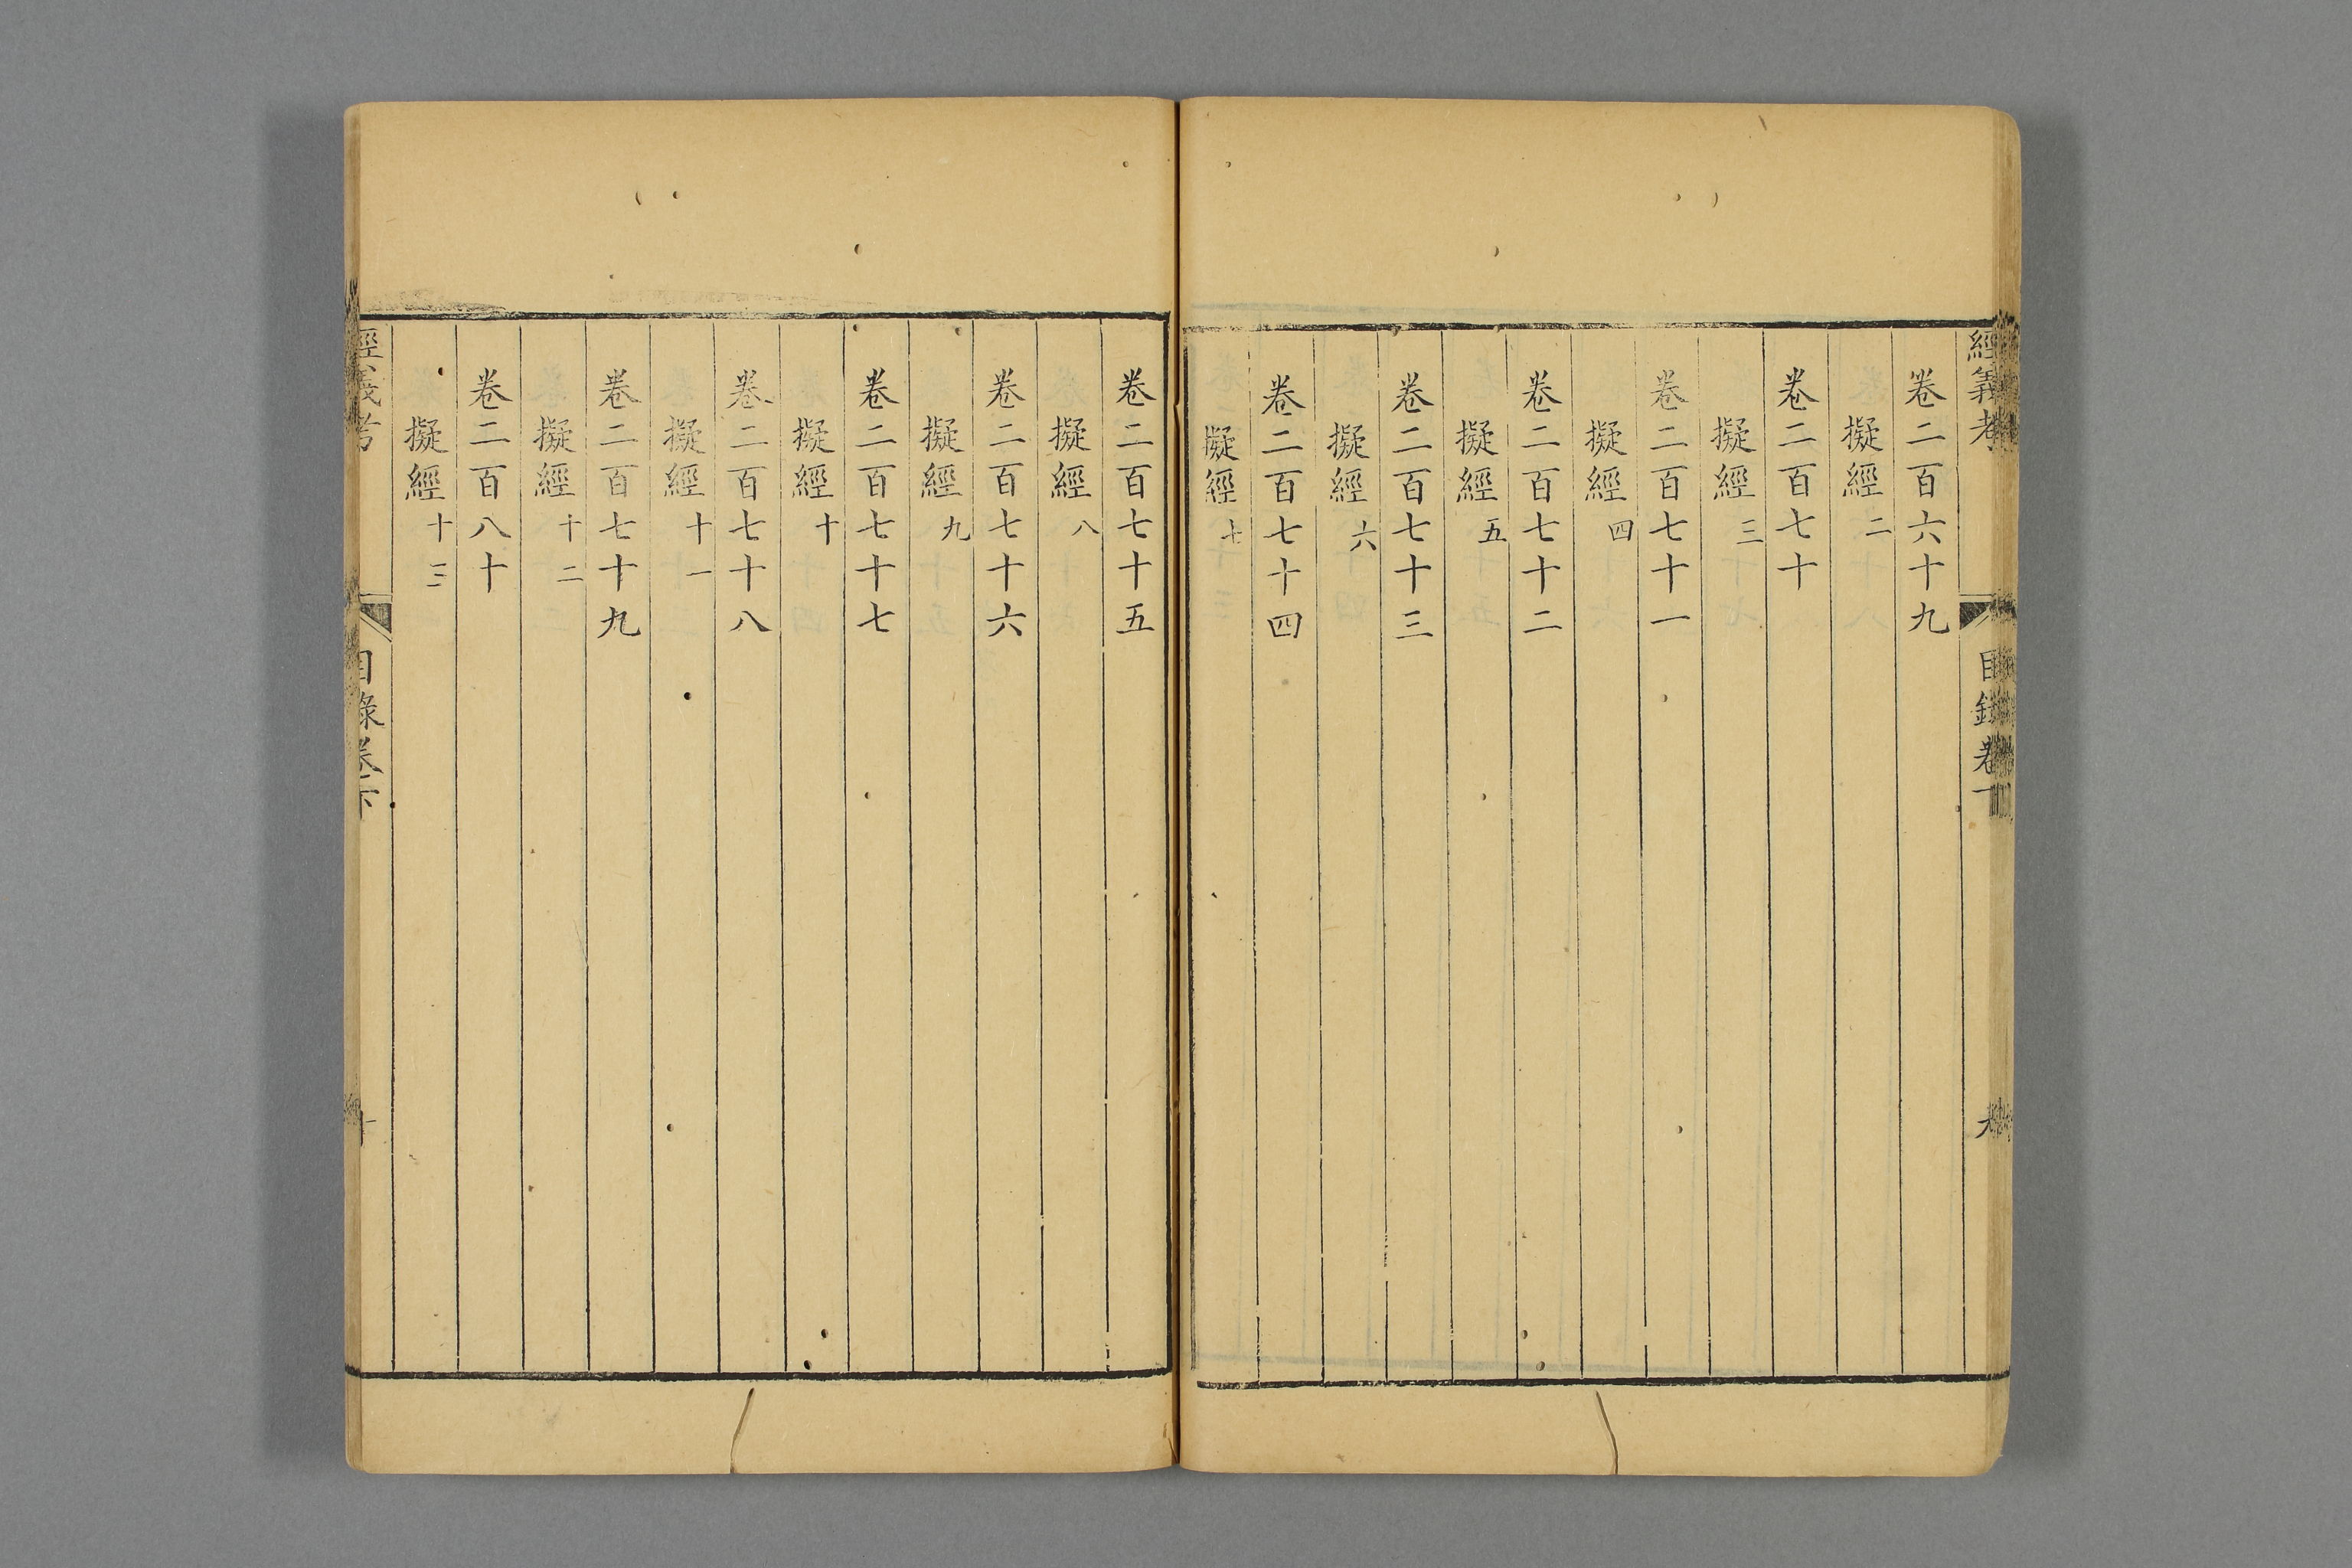 經義考
目錄卷下
卷二百六十九
擬經二
卷二百七十
擬經三
卷二百七十一
擬經四
卷二百七十二
擬經五
卷二百七十三
擬經六
卷二百七十四
擬經七
卷二百七十五
擬經八
卷二百七十六
擬經九
卷二百七十七
擬經十
卷二百七十八
擬經十一
卷二百七十九
擬經十二
卷二百八十
擬經十三
經義考
目錄卷下